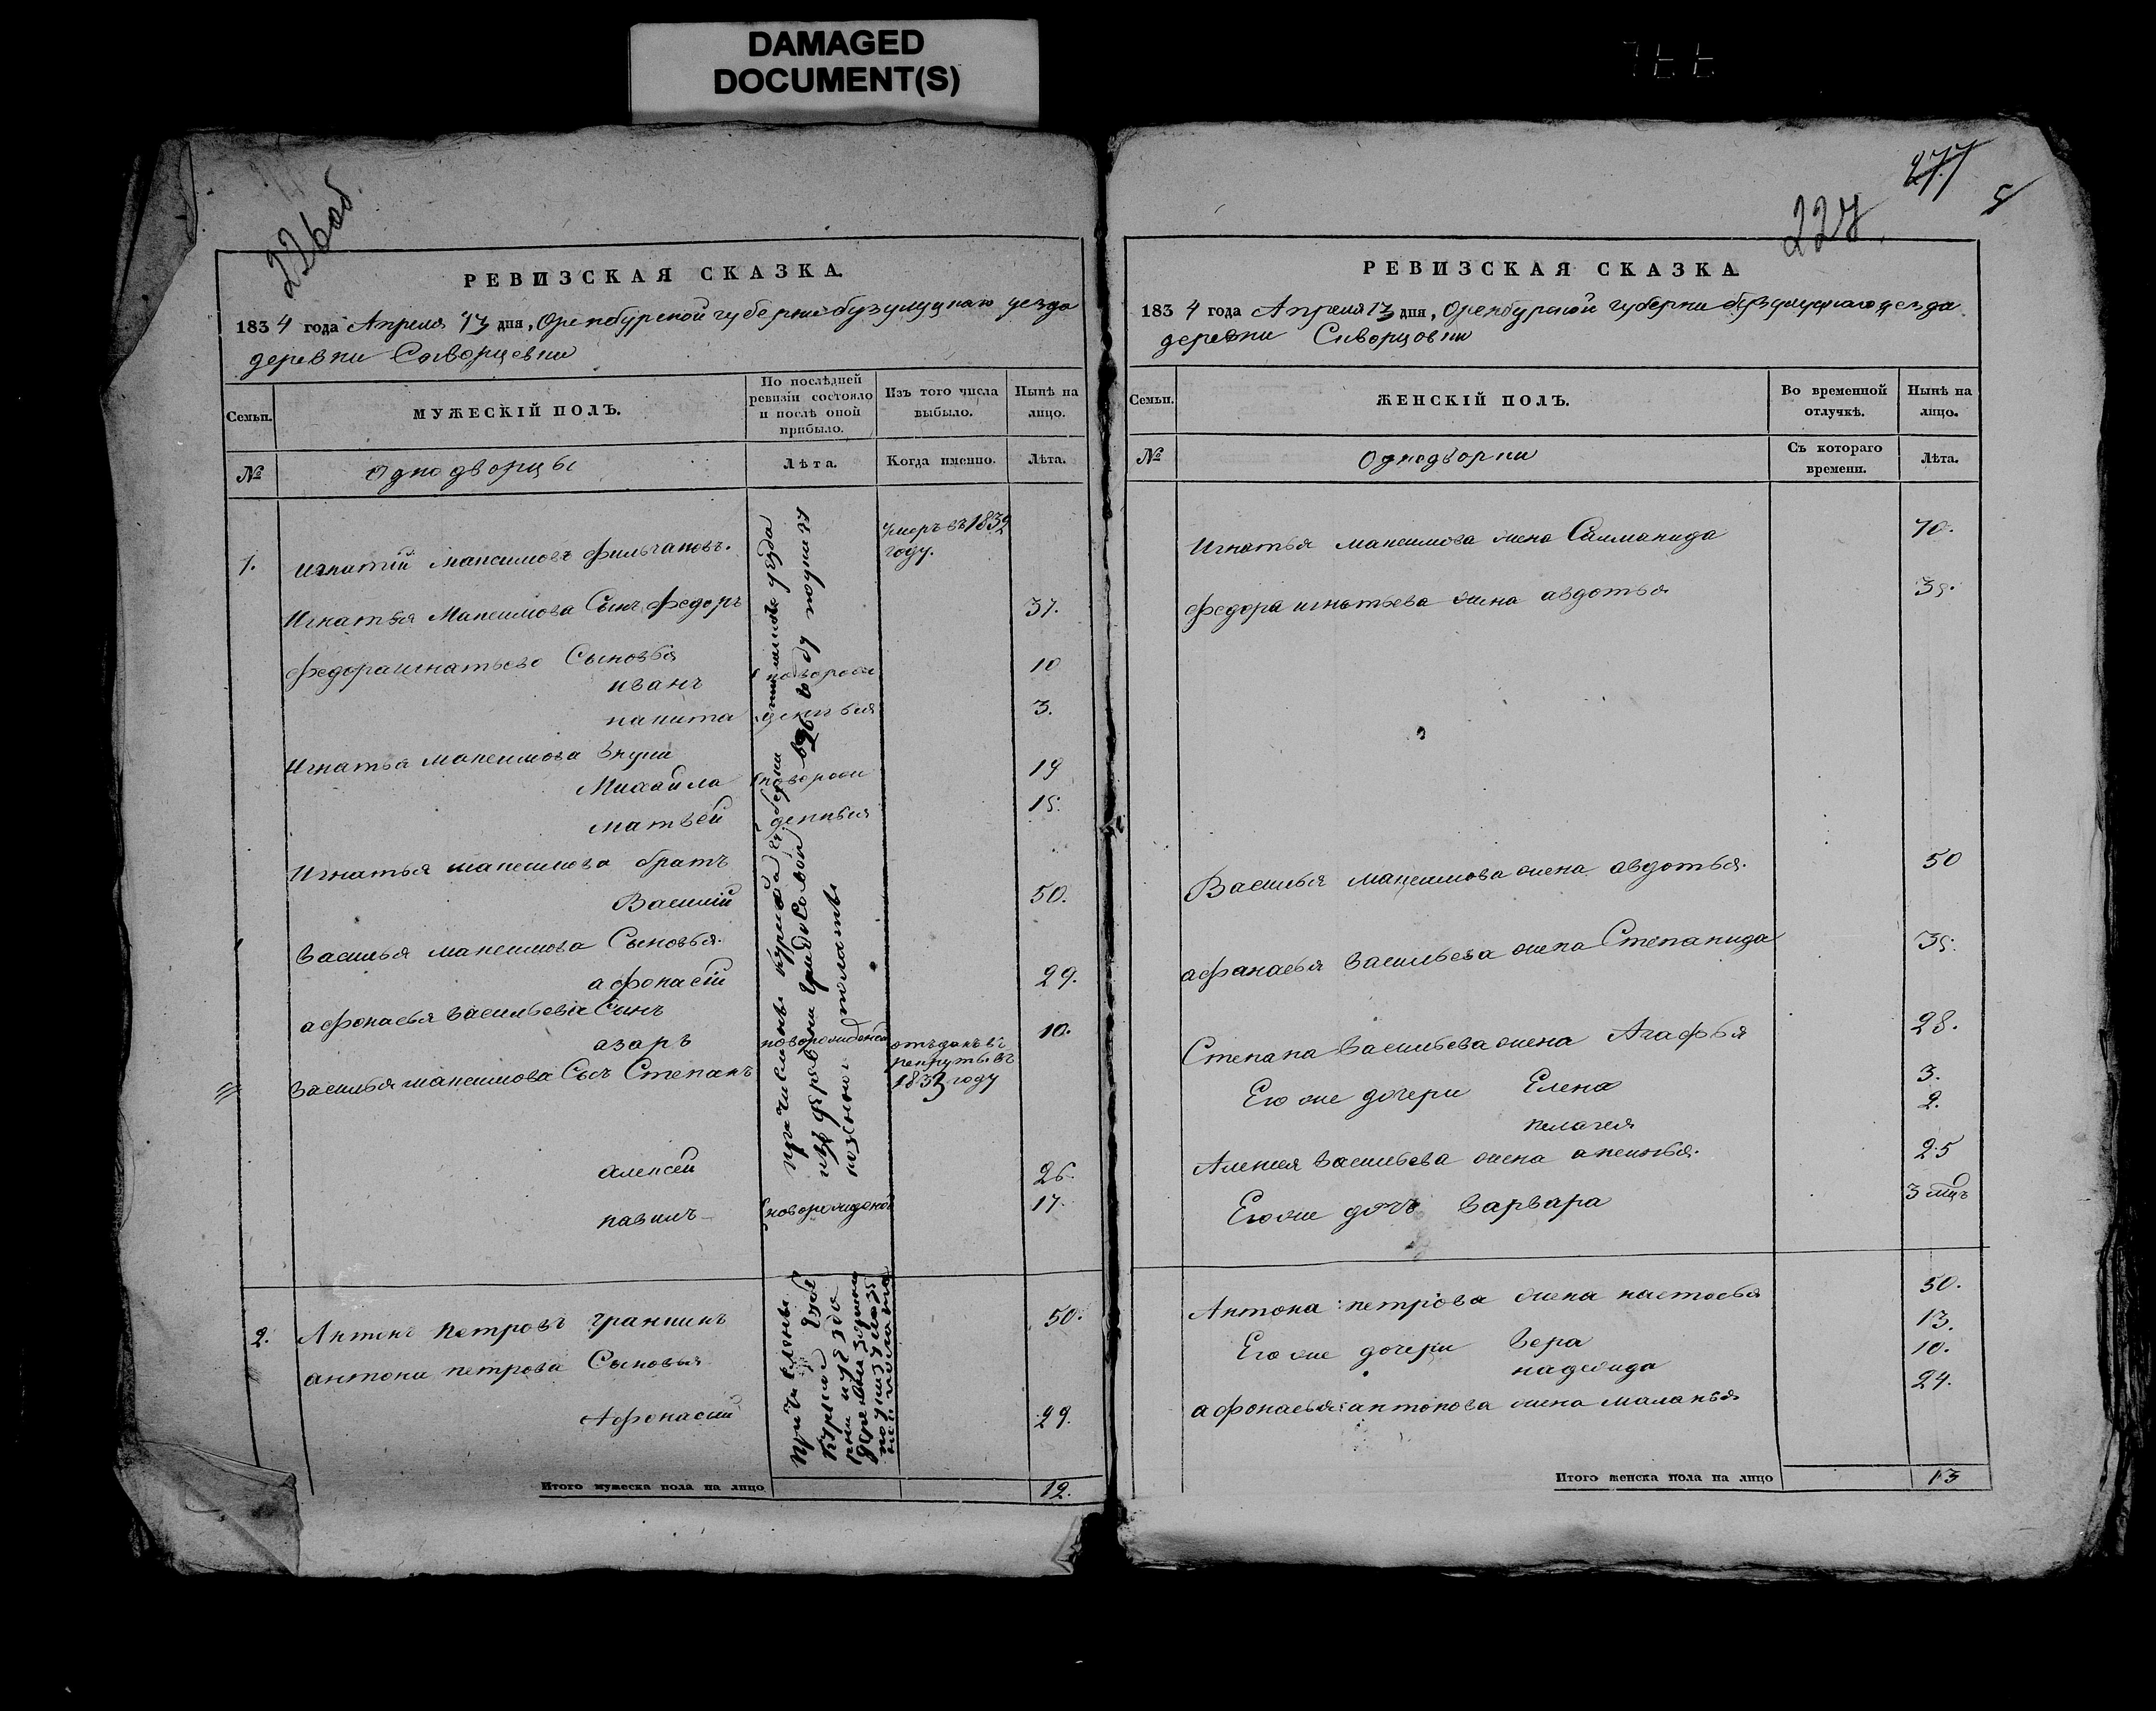 DAMAGED
DOCUMENT(S)
226об
РЕВИЗСКАЯ СКАЗКА.
1834 года Апреля 13 дня, Оренбурской губернии бузулуцкаго уезда
деревни Скворцевки
Семьи.
МУЖЕСКІЙ ПОЛЪ.
По послѣдней
ревизіи состояло
и послѣ оной
прибыло.
Изъ того числа
выбыло.
Нынѣ на
лицо.
№
Однодворцы
Лѣта.
Когда именно.
Лѣта.
1. игнатій максимовъ фильчаповъ.
умеръ въ 1832
году.
Игнатья Максимова Сынъ федоръ 37.
федора игнатьева Сыновья
иванъ новорож 10
никита денныя 3.
Игнатья максимова внуки
Михайла новорож 19
матвей денныя 15.
Игнатья максимова братъ
Василій 50.
Василья максимова Сыновья.
афонасій 29.
афонасья васильева Сынъ
азаръ новорожденой 10.
Василья максимова Сынъ Степанъ
отъданъ въ
рекруты въ
1833 году
алексей 26.
павилъ новорожденой 17.
2. Антонъ петровъ гранкинъ 50.
антона петрова Сыновья
Афонасий 29.
Итого мужеска пола на лицо 12.
277
227.
РЕВИЗСКАЯ СКАЗКА
1834 года Апреля 13 дня, Оренбурской губерни бузулуцкаго уезда
деревни Скворцовки
Семьи.
ЖЕНСКІЙ ПОЛЪ.
Во временной
отлучкѣ.
Нынѣ на
лицо.
№
Однодворки
Съ котораго
времени.
Лѣта.
Игнатья максимова жена Саламанида 70.
федора игнатьева жена авдотья 35.
Василья максимова жена авдотья. 50
афанасья васильева жена Степанида 35.
Степана васильева жена Агафья 28.
Его же дочери Елена 3.
пелагея 2.
Алексея васильева жена аксинья. 25
Его же дочь варвара 3 мцъ
Антона петрова жена настасья 50.
Его же дочери вера 13.
надежда 10.
афонасья антонова жена маланья 24.
Итого женска пола на лицо 13